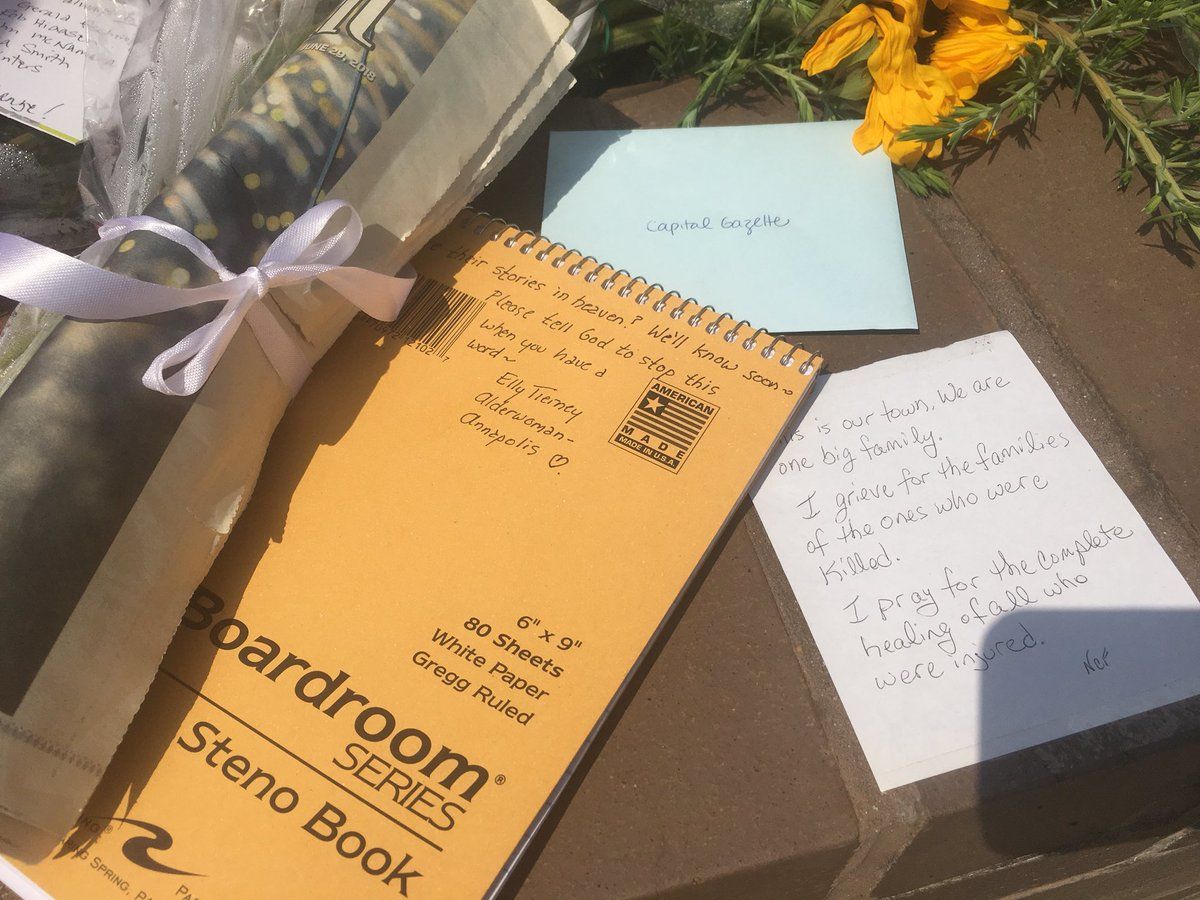 Gerald
Hiaasen
McNam
Smith
nters
JUNE 29, 2018
Capital Gazette
their stories in heaven? We'll know soon~
Please tell God to stop this
when you have a
word~
Elly Tierney
Alderwoman-
Annapolis ♡
AMERICAN
MADE
MADE IN U.S.A.
is is our town. We are
one big family.
I grieve for the families
of the ones who were
Killed.
I pray for the complete
healing of all who
were injured.
6" x 9"
80 Sheets
White Paper
Gregg Ruled
Boardroom®
SERIES
Steno Book
SPRING, PA